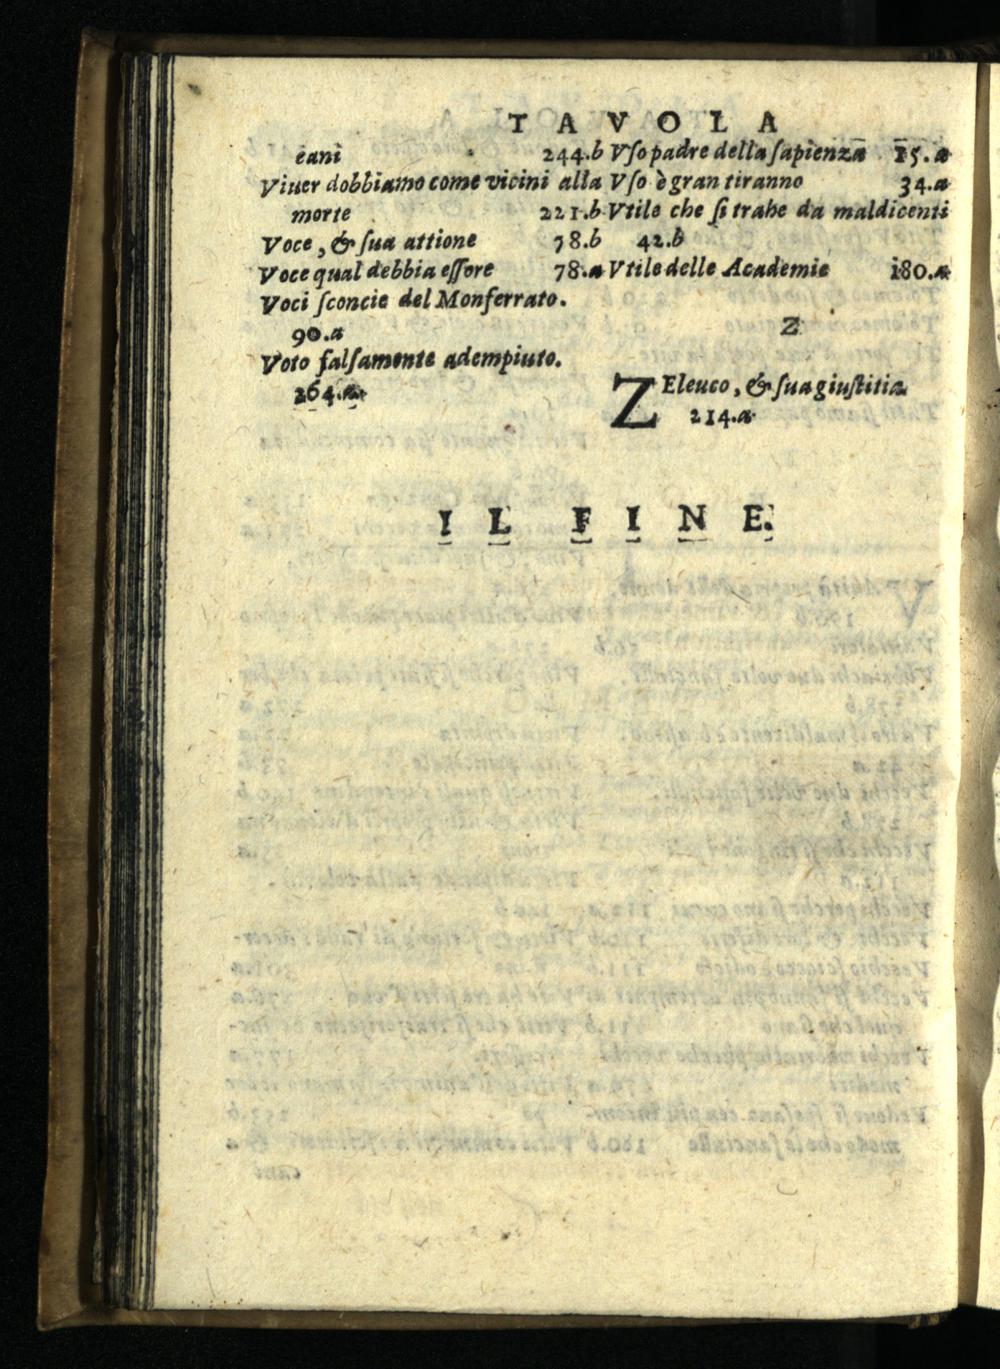 TAVOLA
eani 244.b
Viuer dobbiamo come vicini alla
morte 221.b
Voce, & sua attione 78.b
Voce qual debbia essere 78.a
Voci sconcie del Monferrato.
90.a
Voto falsamente adempiuto.
264.a
Vso padre della sapienza 15.a
Vso è gran tiranno 34.a
Vtile che si trahe da maldicenti
42.b
Vtile delle Academie 180.a
Z
ZEleuco, & sua giustitia
214.a
IL FINE.